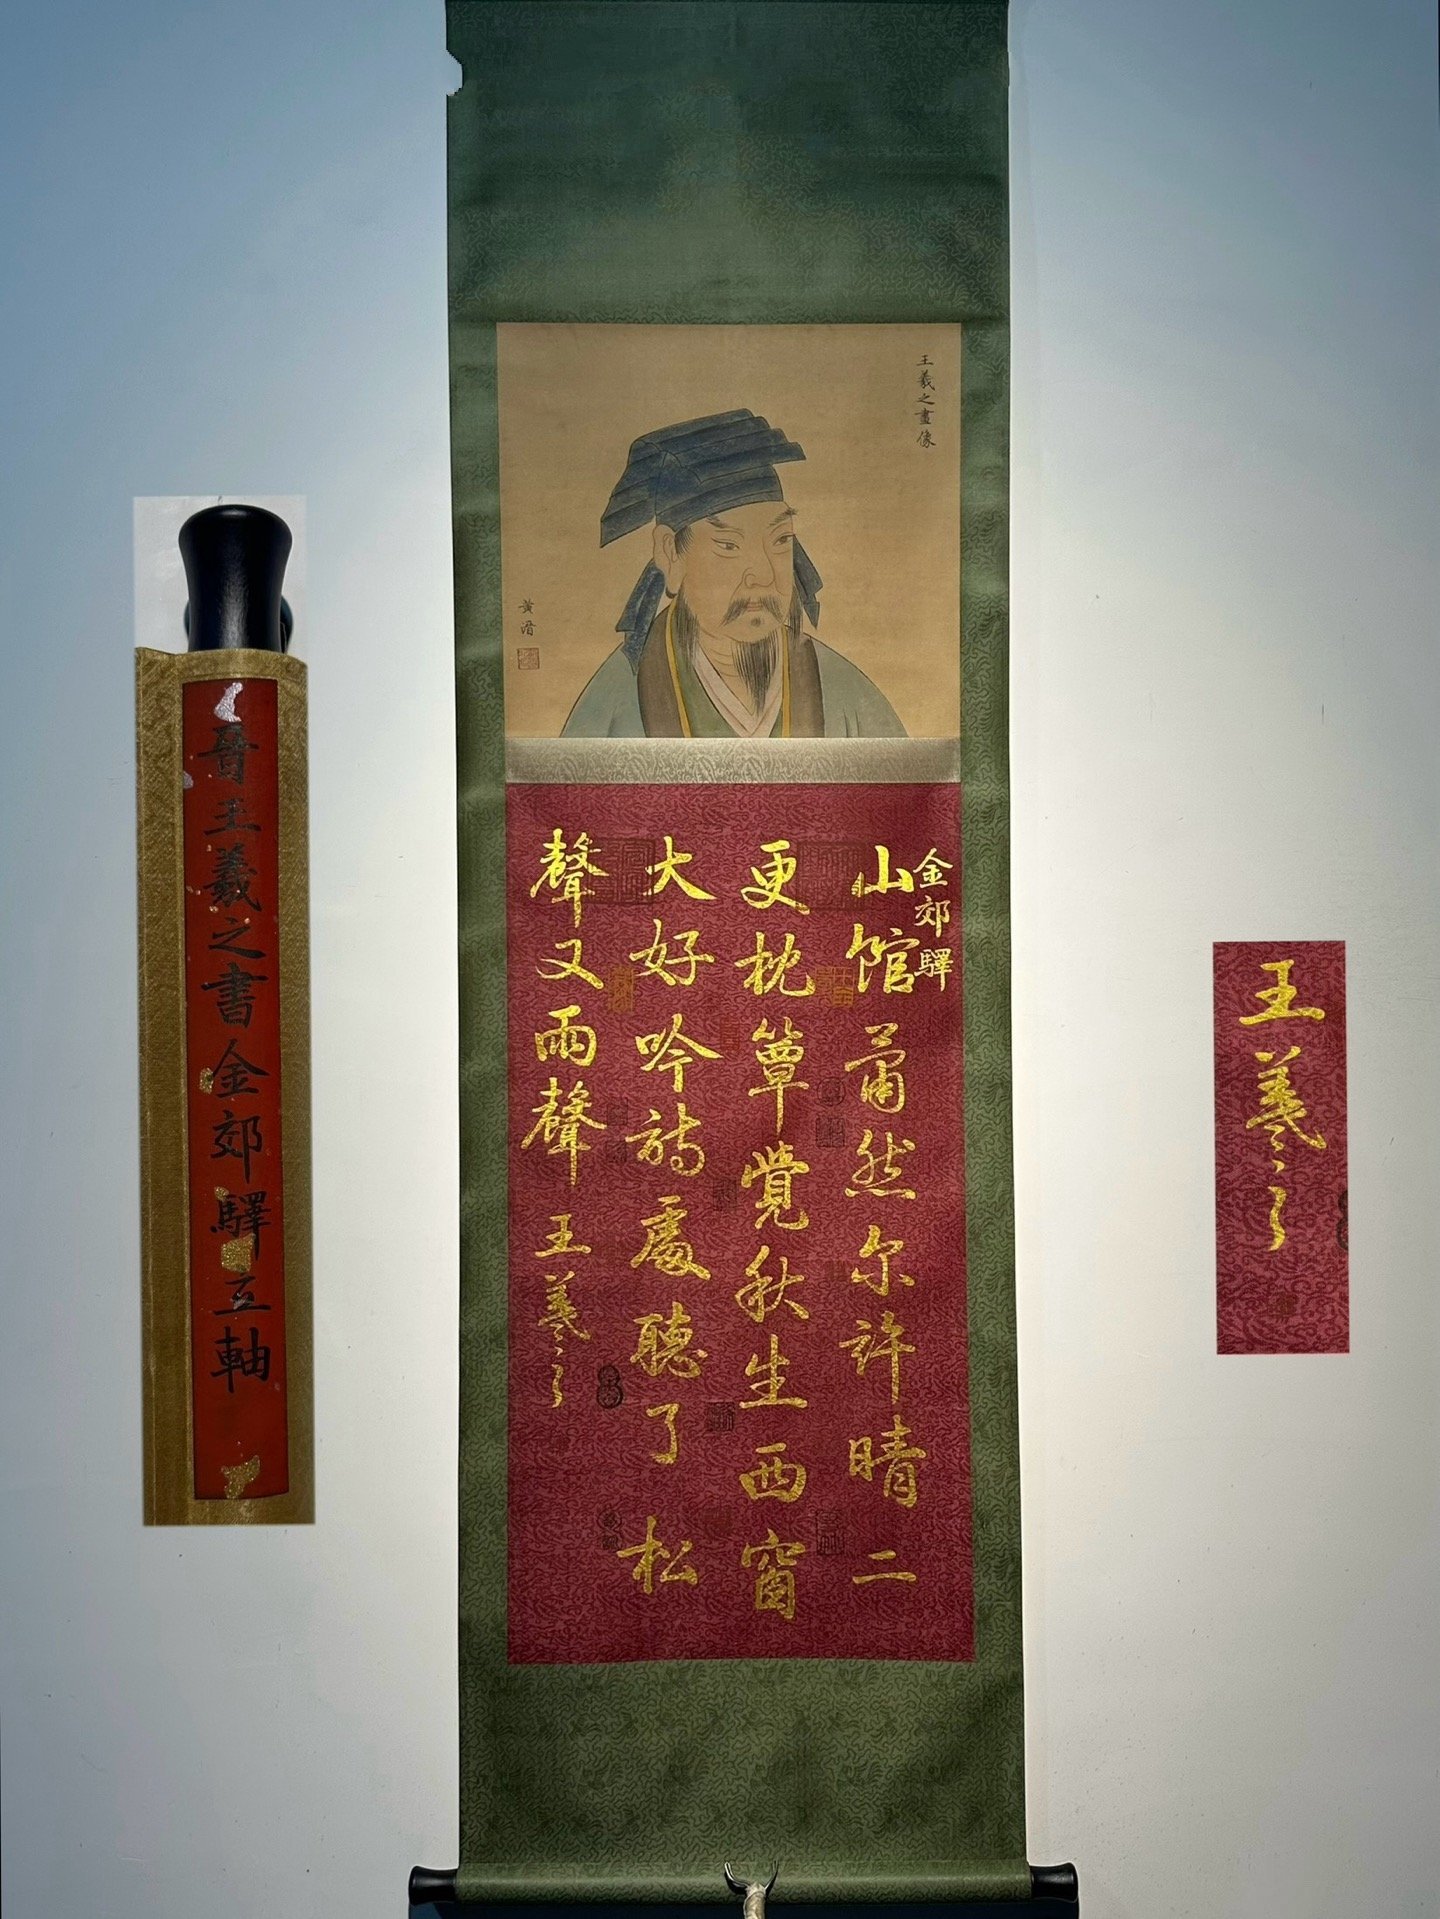 王羲之畫像
黃溍
金郊驛
山館蕭然尔許晴二
更枕簟覺秋生西窗
大好吟詩處聽了松
聲又雨聲 王羲之
晉王羲之書金郊驛立軸
王羲之